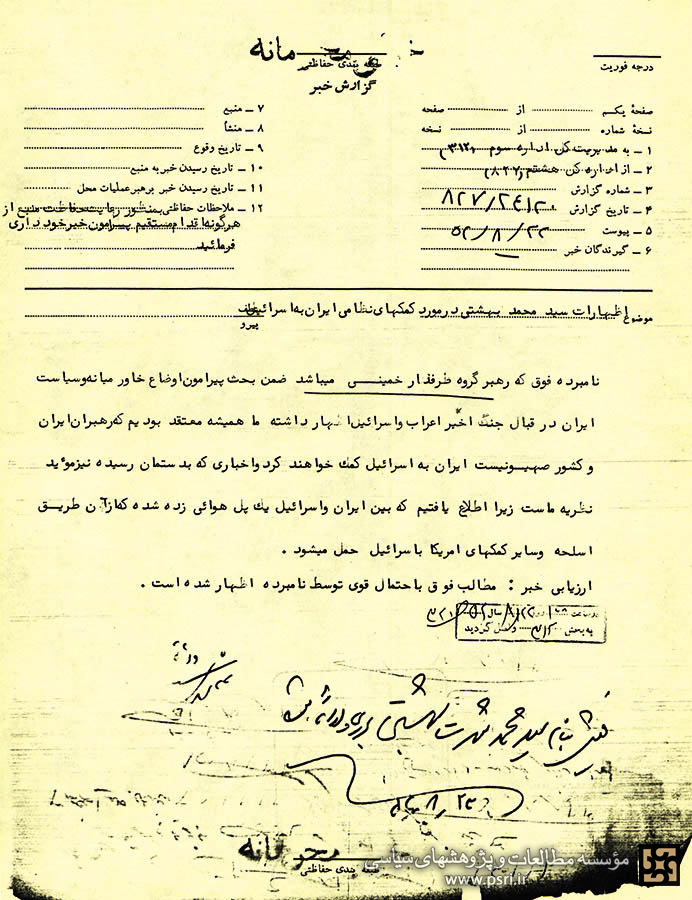 محرمانه
طبقه بندی حفاظتی
درجه فوریت
گزارش خبر
صفحهٔ یکم از صفحه
نسخهٔ شماره از نسخه
۱ – به مدیریت کل اداره سوم (۳۱۲)
۲ – از اداره کل هشتم (۸۲۷)
۳ – شماره گزارش
۸۲۷/۲۴۱۲
۴ – تاریخ گزارش
۵۲/۸/۲۲
۵ – پیوست
۶ – گیرندگان خبر
۷ – منبع
۸ – منشأ
۹ – تاریخ وقوع
۱۰ – تاریخ رسیدن خبر به منبع
۱۱ – تاریخ رسیدن خبر برهبر عملیات محل
۱۲ – ملاحظات حفاظتی بمنظور رعایت حفاظت منبع از
هرگونه اقدام مستقیم پیرامون خبر خود داری
فرمائید
موضوع اظهارات سید محمد بهشتی در مورد کمکهای نظامی ایران به اسرائیل
پیرو
نامبرده فوق که رهبر گروه طرفدار خمینی میباشد ضمن بحث پیرامون اوضاع خاور میانه وسیاست
ایران در قبال جنگ اخیر اعراب واسرائیل اظهار داشته ما همیشه معتقد بودیم که رهبران ایران
و کشور صهیونیست ایران به اسرائیل کمك خواهند کرد واخباری که بدستمان رسیده نیز موٴید
نظریه ماست زیرا اطلاع یافتیم که بین ایران واسرائیل یك پل هوائی زده شده که از آن طریق
اسلحه وسایر کمکهای امریکا باسرائیل حمل میشود .
ارزیابی خبر : مطالب فوق باحتمال قوی توسط نامبرده اظهار شده است .
به بخش ۳۱۲ واصل گردید
سید محمد شهرت بهشتی
محرمانه
طبقه بندی حفاظتی
مؤسسه مطالعات و پژوهشهای سیاسی
www.psri.ir